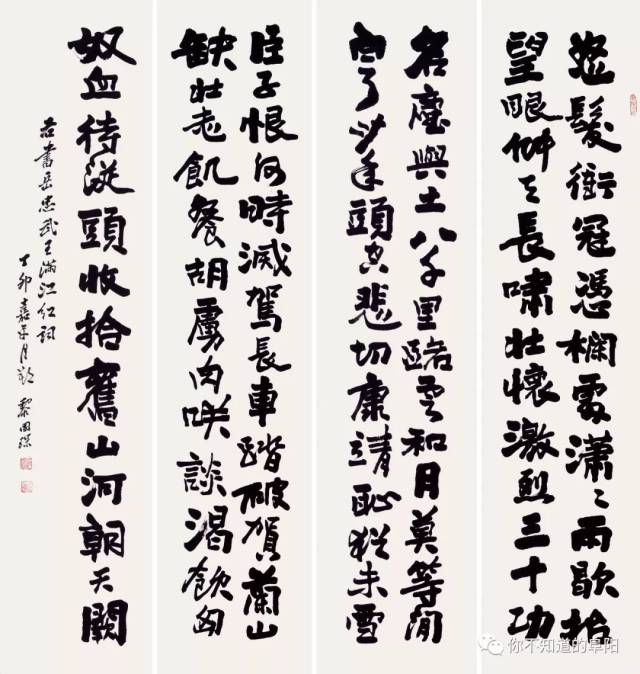 怒髮衝冠憑欄處瀟〻雨歇抬
望眼仰天長嘯壯懷激烈三十功
名塵與土八千里路雲和月莫等閒
白了少年頭空悲切康靖恥猶未雪
臣子恨何時滅駕長車踏破賀蘭山
缺壯志飢餐胡虜肉笑談渴飲匈
奴血待從頭收拾舊山河朝天闕
右書岳忠武王滿江紅詞
丁卯嘉平月
你不知道的阜阳